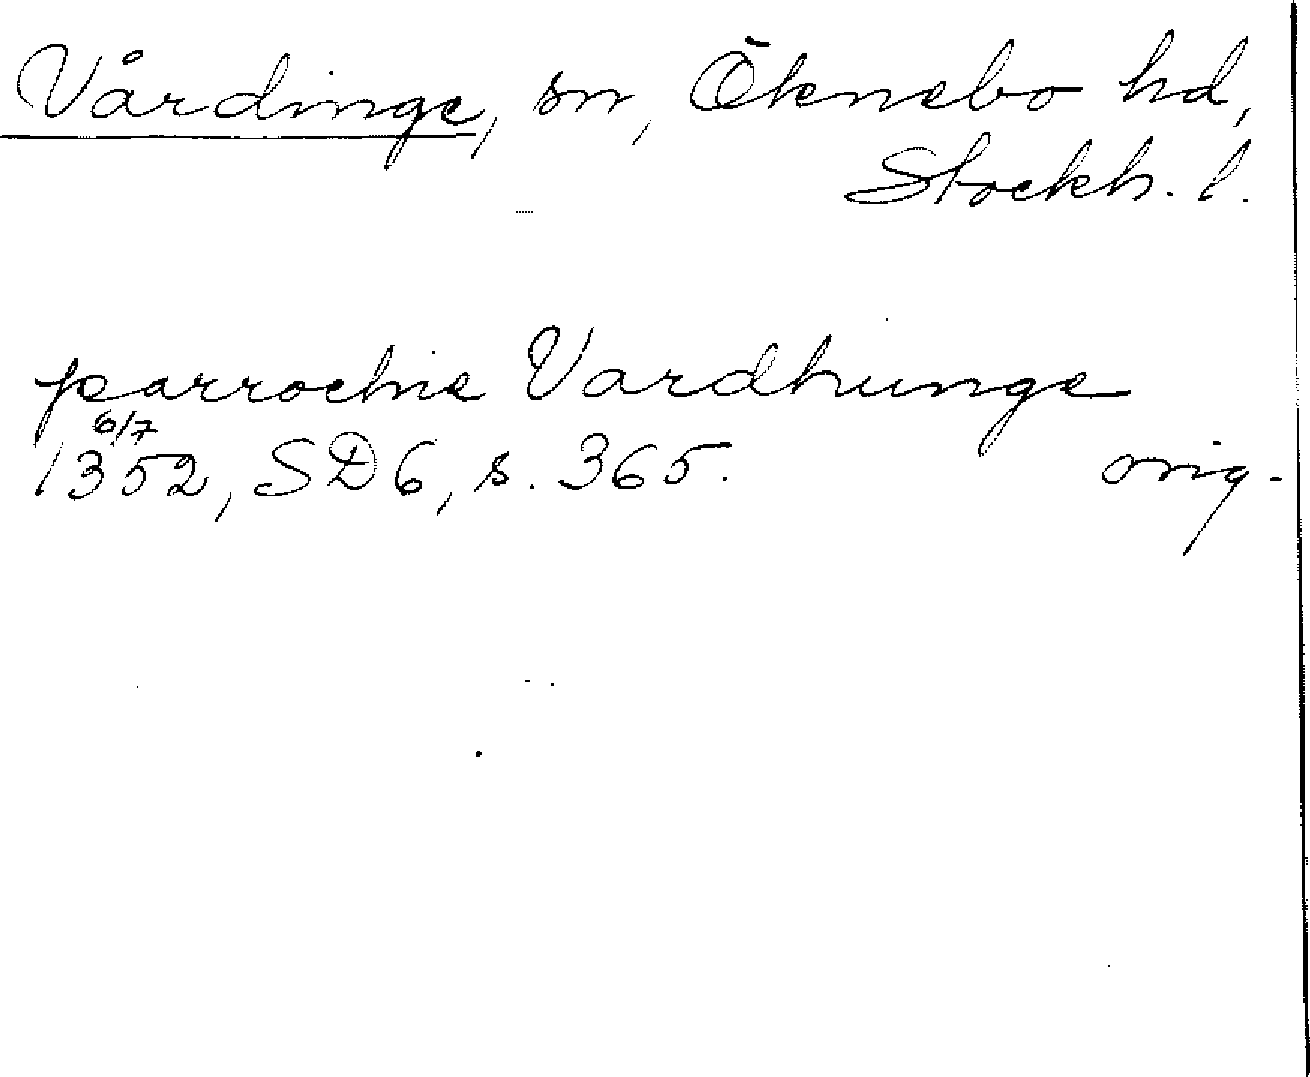 Vårdinge, sn, Öknebo hd,
Stockh. l.
parrochie Vardhunge
6/7
1352, SD6, s. 365. orig.